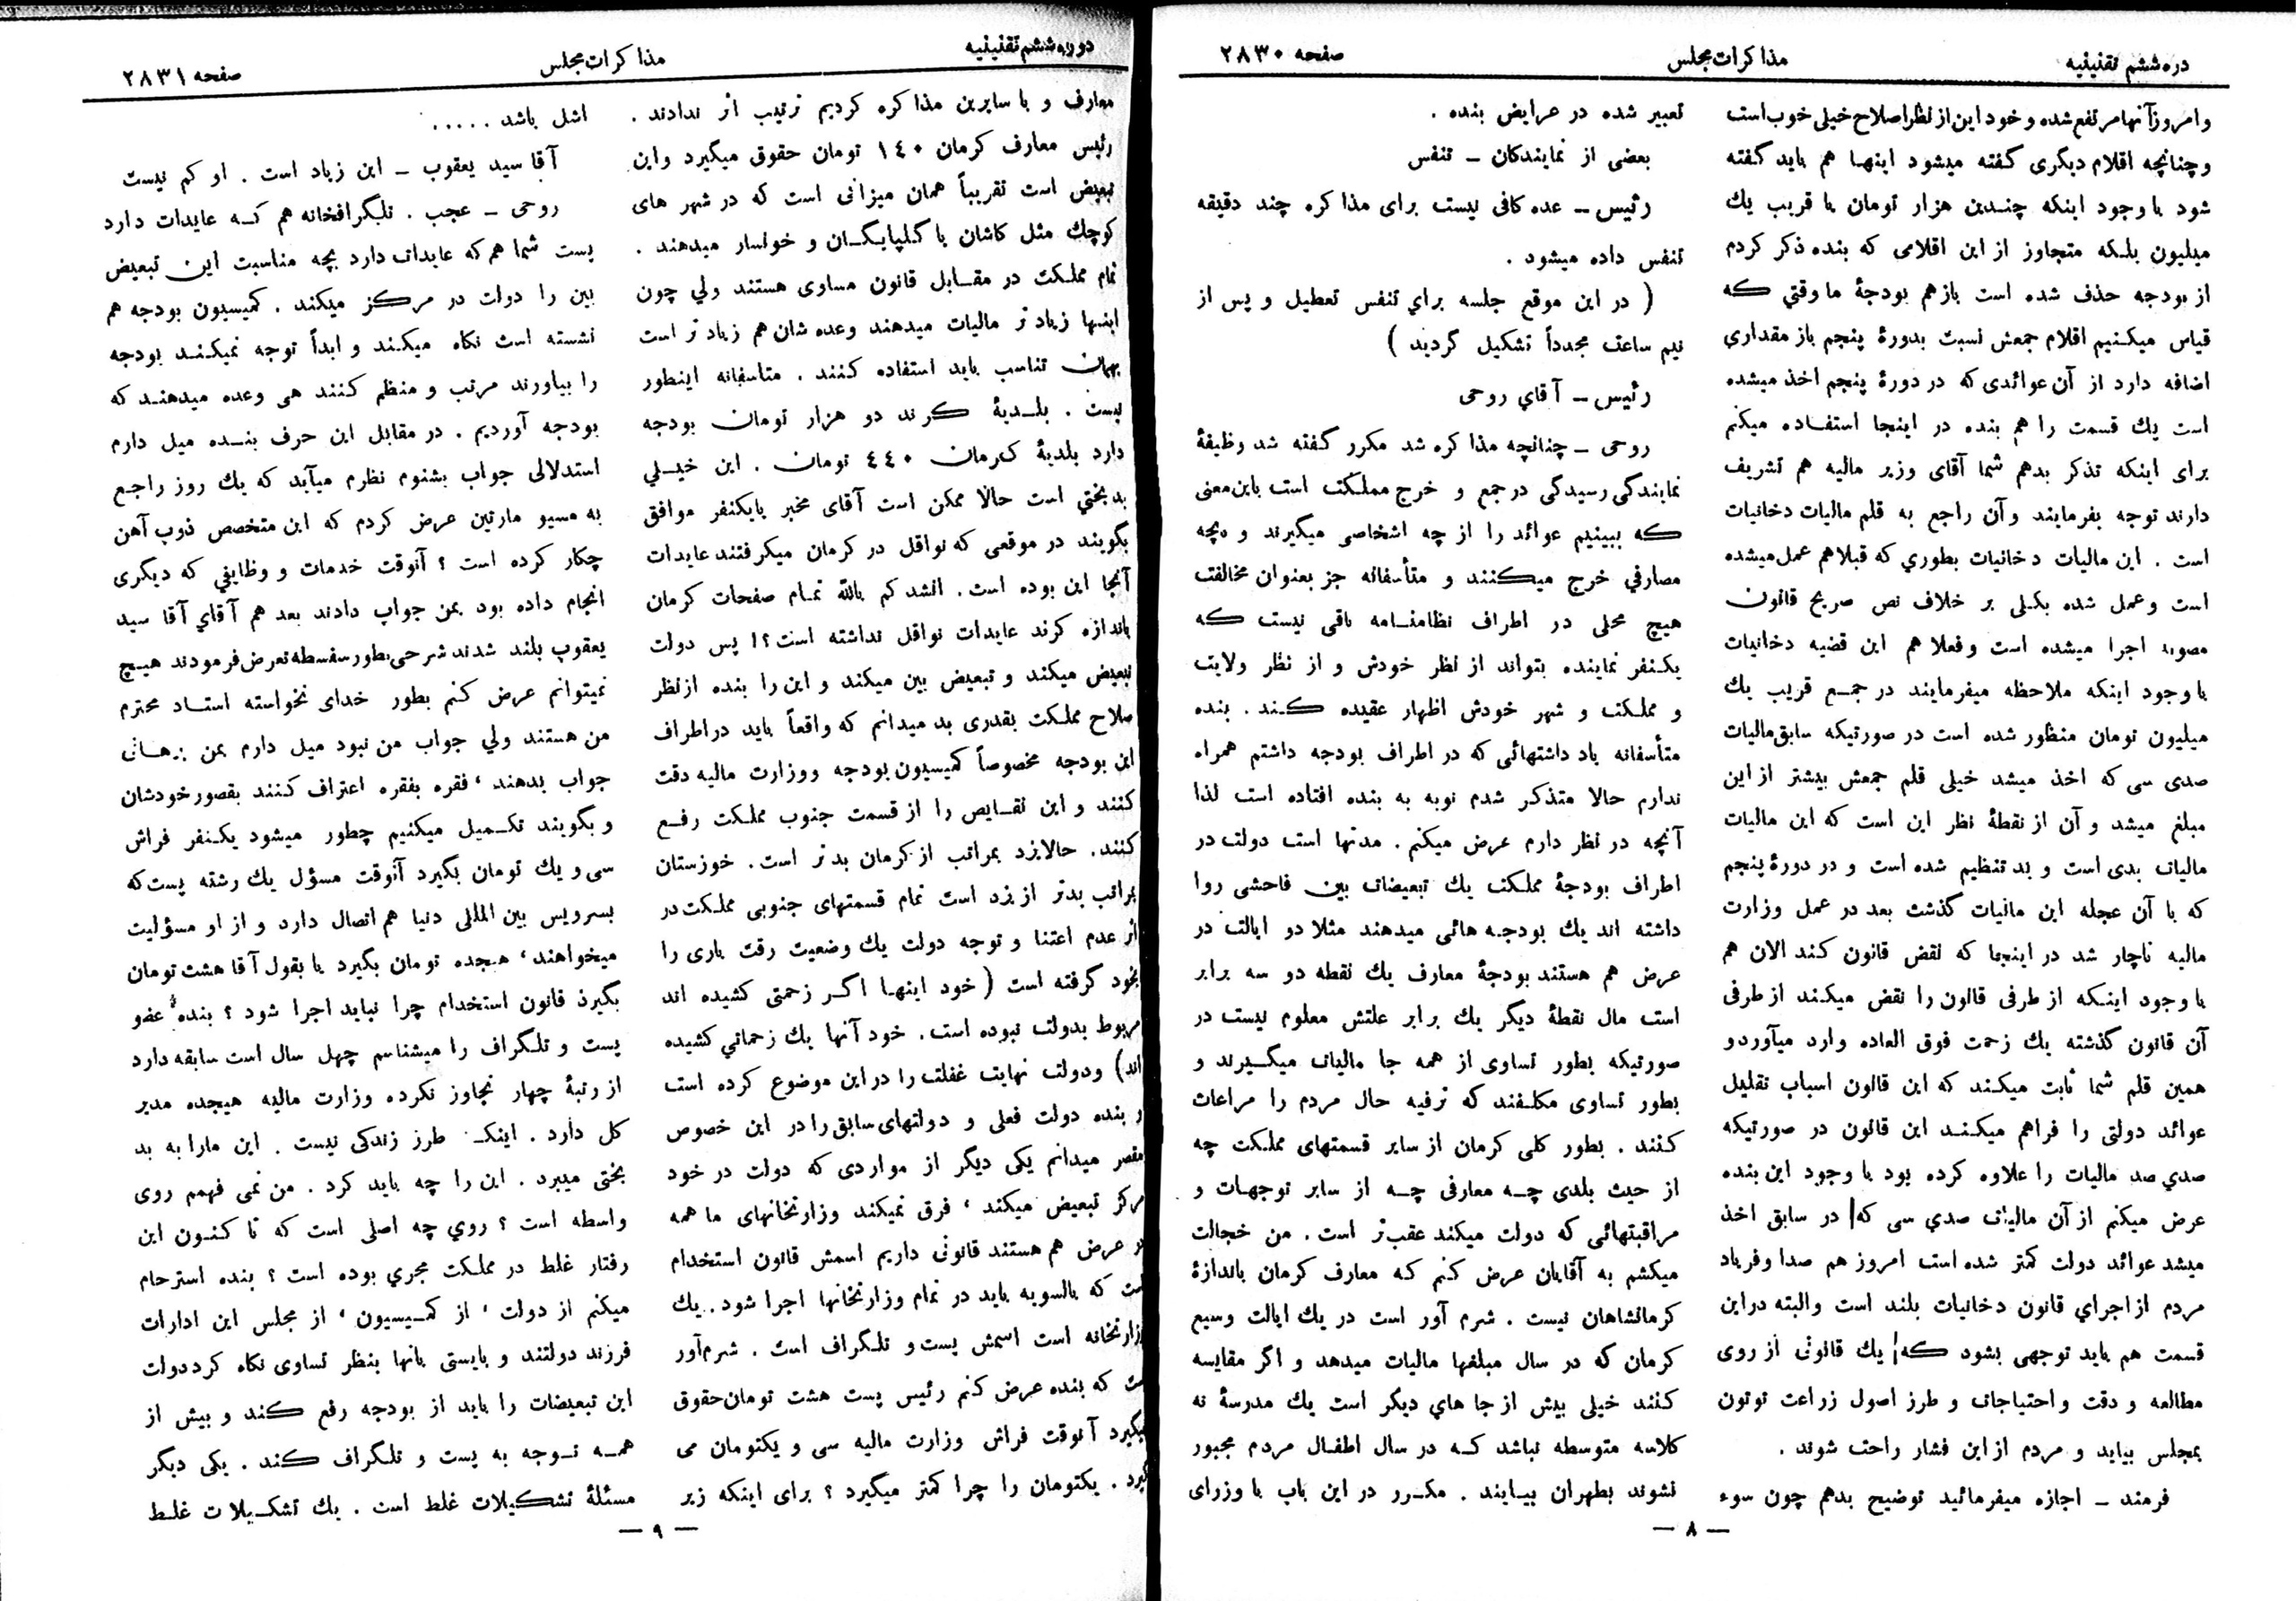 دره ششم تقنینیه
مذاکرات مجلس
صفحه ۲۸۳۰
وامروز آنها مرتفع شده و خود این از نظر اصلاح خیلی خوب است
و چنانچه اقلام دیگری گفته میشود اینها هم باید گفته
شود با وجود اینکه چندین هزار تومان یا قریب یك
میلیون بلکه متجاوز از این اقلامی که بنده ذکر کردم
از بودجه حذف شده است باز هم بودجهٔ ما وقتي که
قیاس میکنیم اقلام جمعش نسبت بدورهٔ پنجم باز مقداری
اضافه دارد از آن عوائدی که در دورهٔ پنجم اخذ میشده
است یك قسمت را هم بنده در اینجا استفاده میکنم
برای اینکه تذکر بدهم شما آقای وزیر مالیه هم تشریف
دارند توجه بفرمایند و آن راجع به قلم مالیات دخانیات
است . این مالیات دخانیات بطوري که قبلا هم عمل میشده
است و عمل شده بکلی بر خلاف نص صریح قانون
مصوبه اجرا میشده است و فعلا هم این قضیه دخانیات
با وجود اینکه ملاحظه میفرمایند در جمع قریب یك
میلیون تومان منظور شده است در صورتیکه سابق مالیات
صدی سی که اخذ میشد خیلی قلم جمعش بیشتر از این
مبلغ میشد و آن از نقطهٔ نظر این است که این مالیات
مالیات بدی است و بد تنظیم شده است و در دورهٔ پنجم
که با آن عجله این مالیات گذشت بعد در عمل وزارت
مالیه ناچار شد در اینجا که نقض قانون کند الان هم
با وجود اینکه از طرفی قانون را نقض میکند از طرفی
آن قانون گذشته یك زحمت فوق العاده وارد میآورد و
همین قلم شما ثابت میکند که این قانون اسباب تقلیل
عوائد دولتی را فراهم میکند این قانون در صورتیکه
صدي صد مالیات را علاوه کرده بود با وجود این بنده
عرض میکنم از آن مالیات صدي سی که در سابق اخذ
میشد عوائد دولت کمتر شده است امروز هم صدا و فریاد
مردم از اجراي قانون دخانیات بلند است و البته در این
قسمت هم باید توجهی بشود که یك قانونی از روی
مطالعه و دقت و احتیاجات و طرز اصول زراعت توتون
بمجلس بیاید و مردم از این فشار راحت شوند .
فرمند ـ اجازه میفرمائید توضیح بدهم چون سوء
تعبیر شده در عرایض بنده .
بعضی از نمایندکان ـ تنفس
رئیس ـ عده کافی نیست برای مذاکره چند دقیقه
تنفس داده میشود .
( در این موقع جلسه براي تنفس تعطیل و پس از
نیم ساعت مجدداً تشکیل گردید )
رئیس ـ آقاي روحی
روحی ـ چنانچه مذاکره شد مکرر گفته شد وظیفهٔ
نمایندگی رسیدگی در جمع و خرج مملکت است باین معنی
که ببینیم عوائد را از چه اشخاصی میگیرند و بچه
مصارفي خرج میکنند و متأسفانه جز بعنوان مخالفت
هیچ محلی در اطراف نظامنامه باقی نیست که
یکنفر نماینده بتواند از نظر خودش و از نظر ولایت
و مملکت و شهر خودش اظهار عقیده کند . بنده
متأسفانه یاد داشتهائی که در اطراف بودجه داشتم همراه
ندارم حالا متذکر شدم نوبه به بنده افتاده است لذا
آنچه در نظر دارم عرض میکنم . مدتها است دولت در
اطراف بودجهٔ مملکت یك تبعیضات بین فاحشی روا
داشته اند یك بودجه هائی میدهند مثلا دو ایالت در
عرض هم هستند بودجهٔ معارف یك نقطه دو سه برابر
است مال نقطهٔ دیگر یك برابر علتش معلوم نیست در
صورتیکه بطور تساوی از همه جا مالیات میگیرند و
بطور تساوی مکلفند که ترفیه حال مردم را مراعات
کنند . بطور کلی کرمان از سایر قسمتهای مملکت چه
از حیث بلدی چه معارفی چه از سایر توجهات و
مراقبتهائی که دولت میکند عقبتر است . من خجالت
میکشم به آقایان عرض کنم که معارف کرمان باندازهٔ
کرمانشاهان نیست . شرم آور است در یك ایالت وسیع
کرمان که در سال مبلغها مالیات میدهد و اگر مقایسه
کنند خیلی بیش از جا هاي دیگر است یك مدرسهٔ نه
کلاسه متوسطه نباشد که در سال اطفال مردم مجبور
نشوند بطهران بیایند . مکرر در این باب با وزرای
— ۸ —
دوره ششم تقنینیه
مذاکرات مجلس
صفحه ۲۸۳۱
معارف و با سایرین مذاکره کردیم ترتیب اثر ندادند .
رئیس معارف کرمان ۱٤۰ تومان حقوق میگیرد و این
تبعیض است تقریباً همان میزانی است که در شهر های
کوچك مثل کاشان یا گلپایگان و خونسار میدهند .
تمام مملکت در مقابل قانون مساوی هستند ولي چون
اینها زیاد تر مالیات میدهند وعده شان هم زیاد تر است
بهمان تناسب باید استفاده کنند . متاسفانه اینطور
نیست . بلدیهٔ کرند دو هزار تومان بودجه
دارد بلدیهٔ کرمان ٤٤۰ تومان . این خیلي
بدبختي است حالا ممکن است آقای مخبر یا یکنفر موافق
بگویند در موقعی که نواقل در کرمان میکرفتند عایدات
آنجا این بوده است . انشد کم بالله تمام صفحات کرمان
باندازه کرند عایدات نواقل نداشته است ؟! پس دولت
تبعیض میکند و تبعیض بین میکند و این را بنده از نظر
صلاح مملکت بقدری بد میدانم که واقعاً باید در اطراف
این بودجه مخصوصاً کمیسیون بودجه و وزارت مالیه دقت
کنند و این نقایص را از قسمت جنوب مملکت رفع
کنند . حالا یزد بمراتب از کرمان بد تر است . خوزستان
بمراتب بدتر از یزد است تمام قسمتهای جنوبی مملکت در
اثر عدم اعتنا و توجه دولت یك وضعیت رقت باری را
بخود گرفته است ( خود اینها اگر زحمتی کشیده اند
مربوط بدولت نبوده است . خود آنها یك زحماتي کشیده
اند) و دولت نهایت غفلت را در این موضوع کرده است
و بنده دولت فعلی و دولتهای سابق را در این خصوص
مقصر میدانم یکی دیگر از مواردی که دولت در خود
مرکز تبعیض میکند ، فرق نمیکند وزارتخانهای ما همه
در عرض هم هستند قانونی داریم اسمش قانون استخدام
است که بالسویه باید در تمام وزارتخانها اجرا شود . یك
وزارتخانه است اسمش پست و تلگراف است . شرم آور
است که بنده عرض کنم رئیس پست هشت تومان حقوق
میگیرد آنوقت فراش وزارت مالیه سی و یکتومان می
گیرد . یکتومان را چرا کمتر میگیرد ؟ برای اینکه زیر
اشل باشد . . . . .
آقا سید یعقوب ـ این زیاد است . او کم نیست
روحی ـ عجب . تلگرافخانه هم که عایدات دارد
پست شما هم که عایدات دارد بچه مناسبت این تبعیض
بین را دولت در مرکز میکند . کمیسیون بودجه هم
نشسته است نکاه میکند و ابداً توجه نمیکند بودجه
را بیاورند مرتب و منظم کنند هی وعده میدهند که
بودجه آوردیم . در مقابل این حرف بنده میل دارم
استدلالی جواب بشنوم نظرم میآید که یك روز راجع
به مسیو مارتین عرض کردم که این متخصص ذوب آهن
چکار کرده است ؟ آنوقت خدمات و وظایفي که دیگری
انجام داده بود بمن جواب دادند بعد هم آقاي آقا سید
یعقوب بلند شدند شرحی بطور سفسطه تعرض فرمودند هیچ
نمیتوانم عرض کنم بطور خدای نخواسته استاد محترم
من هستند ولي جواب من نبود میل دارم بمن برهانی
جواب بدهند ، فقره بفقره اعتراف کنند بقصور خودشان
و بگویند تکمیل میکنیم چطور میشود یکنفر فراش
سی و یك تومان بگیرد آنوقت مسؤل یك رشته پست که
بسرویس بین المللی دنیا هم اتصال دارد و از او مسؤلیت
میخواهند ، هجده تومان بگیرد یا بقول آقا هشت تومان
بگیرد قانون استخدام چرا نباید اجرا شود ؟ بنده عضو
پست و تلگراف را میشناسم چهل سال است سابقه دارد
از رتبهٔ چهار تجاوز نکرده وزارت مالیه هیجده مدیر
کل دارد . اینکه طرز زندکی نیست . این ما را به بد
بختی میبرد . این را چه باید کرد . من نمی فهمم روی
واسطه است ؟ روي چه اصلی است که تا کنون این
رفتار غلط در مملکت مجري بوده است ؟ بنده استرحام
میکنم از دولت ، از کمیسیون ، از مجلس این ادارات
فرزند دولتند و بایستی بانها بنظر تساوی نکاه کرد دولت
این تبعیضات را باید از بودجه رفع کند و بیش از
همه توجه به پست و تلگراف کند . یکی دیگر
مسئلهٔ تشکیلات غلط است . یك تشکیلات غلط
— ۹ —